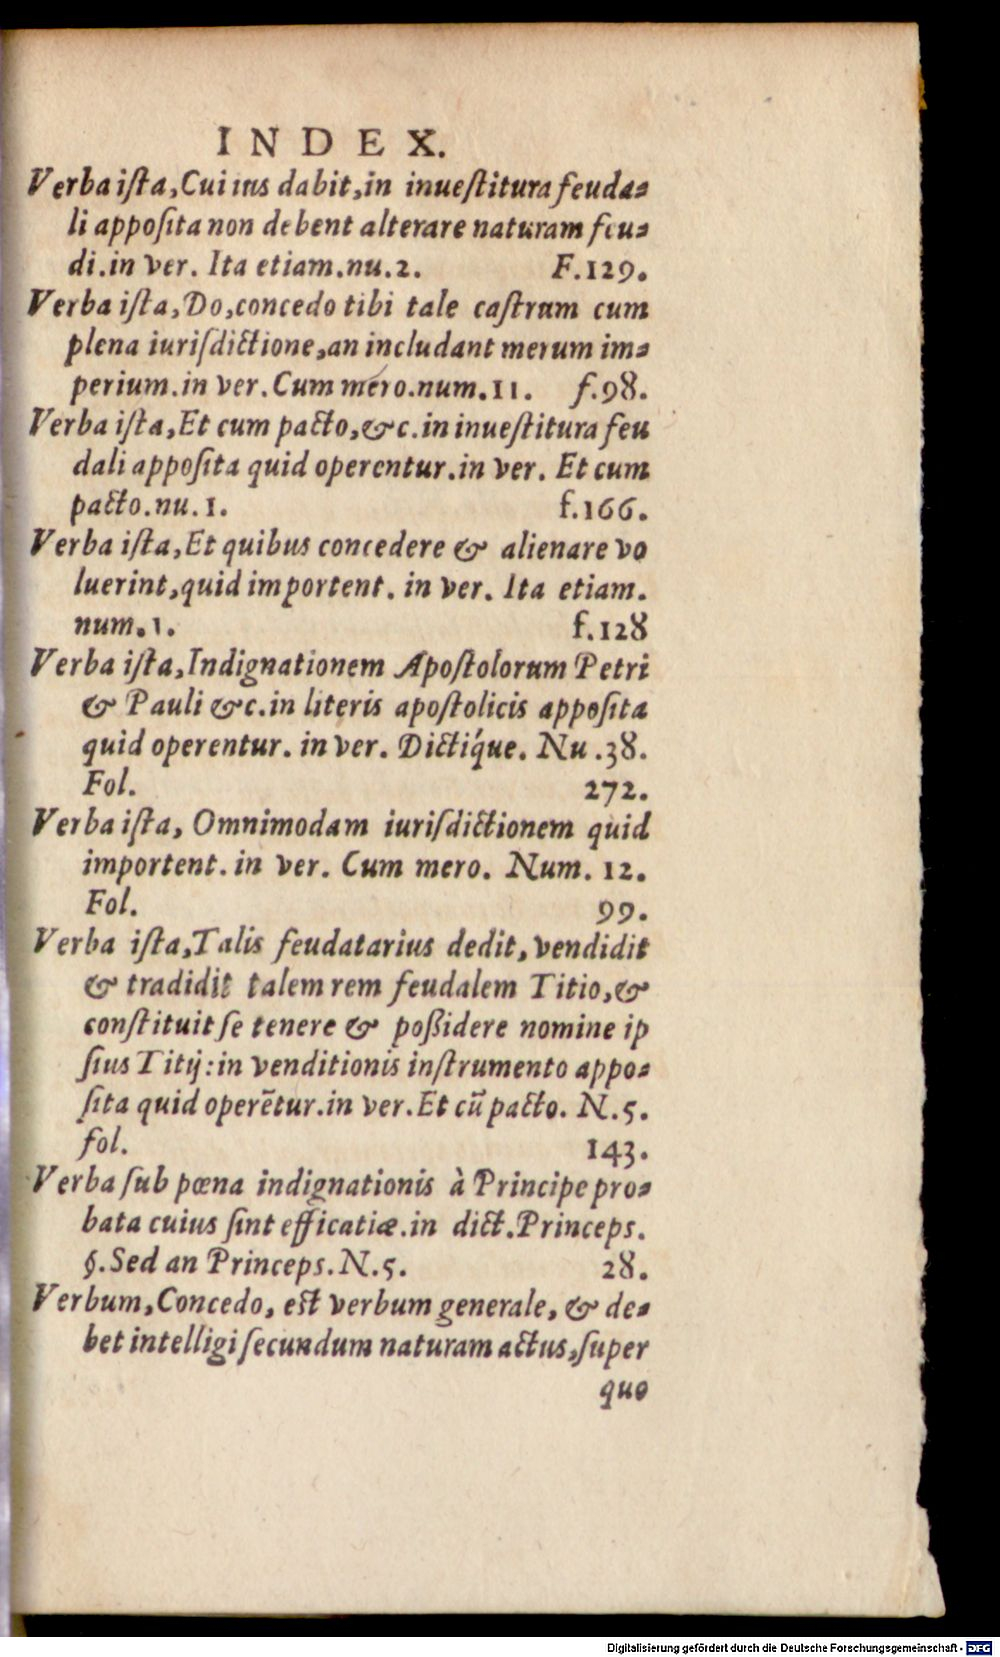 INDEX.
Verba iſta, Cui ius dabit, in inueſtitura feuda-
li appoſita non debent alterare naturam feu-
di. in ver. Ita etiam. nu. 2. F. 129.
Verba iſta, Do, concedo tibi tale caſtrum cum
plena iuriſdictione, an includant merum im-
perium. in ver. Cum mero. num. 11. f. 98.
Verba iſta, Et cum pacto, &c. in inueſtitura feu
dali appoſita quid operentur. in ver. Et cum
pacto. nu. 1. f. 166.
Verba iſta, Et quibus concedere & alienare vo
luerint, quid importent. in ver. Ita etiam.
num. 1. f. 128
Verba iſta, Indignationem Apoſtolorum Petri
& Pauli &c. in literis apoſtolicis appoſita
quid operentur. in ver. Dictiq́ue. Nu. 38.
Fol. 272.
Verba iſta, Omnimodam iuriſdictionem quid
importent. in ver. Cum mero. Num. 12.
Fol. 99.
Verba iſta, Talis feudatarius dedit, vendidit
& tradidit talem rem feudalem Titio, &
conſtituit ſe tenere & poßidere nomine ip
ſius Titij: in venditionis inſtrumento appo-
ſita quid operẽtur. in ver. Et cũ pacto. N. 5.
fol. 143.
Verba ſub pœna indignationis à Principe pro-
bata cuius ſint efficatiæ. in dict. Princeps.
§. Sed an Princeps. N. 5. 28.
Verbum, Concedo, eſt verbum generale, & de-
bet intelligi ſecundum naturam actus, ſuper
quo
Digitalisierung gefördert durch die Deutsche Forschungsgemeinschaft - DFG